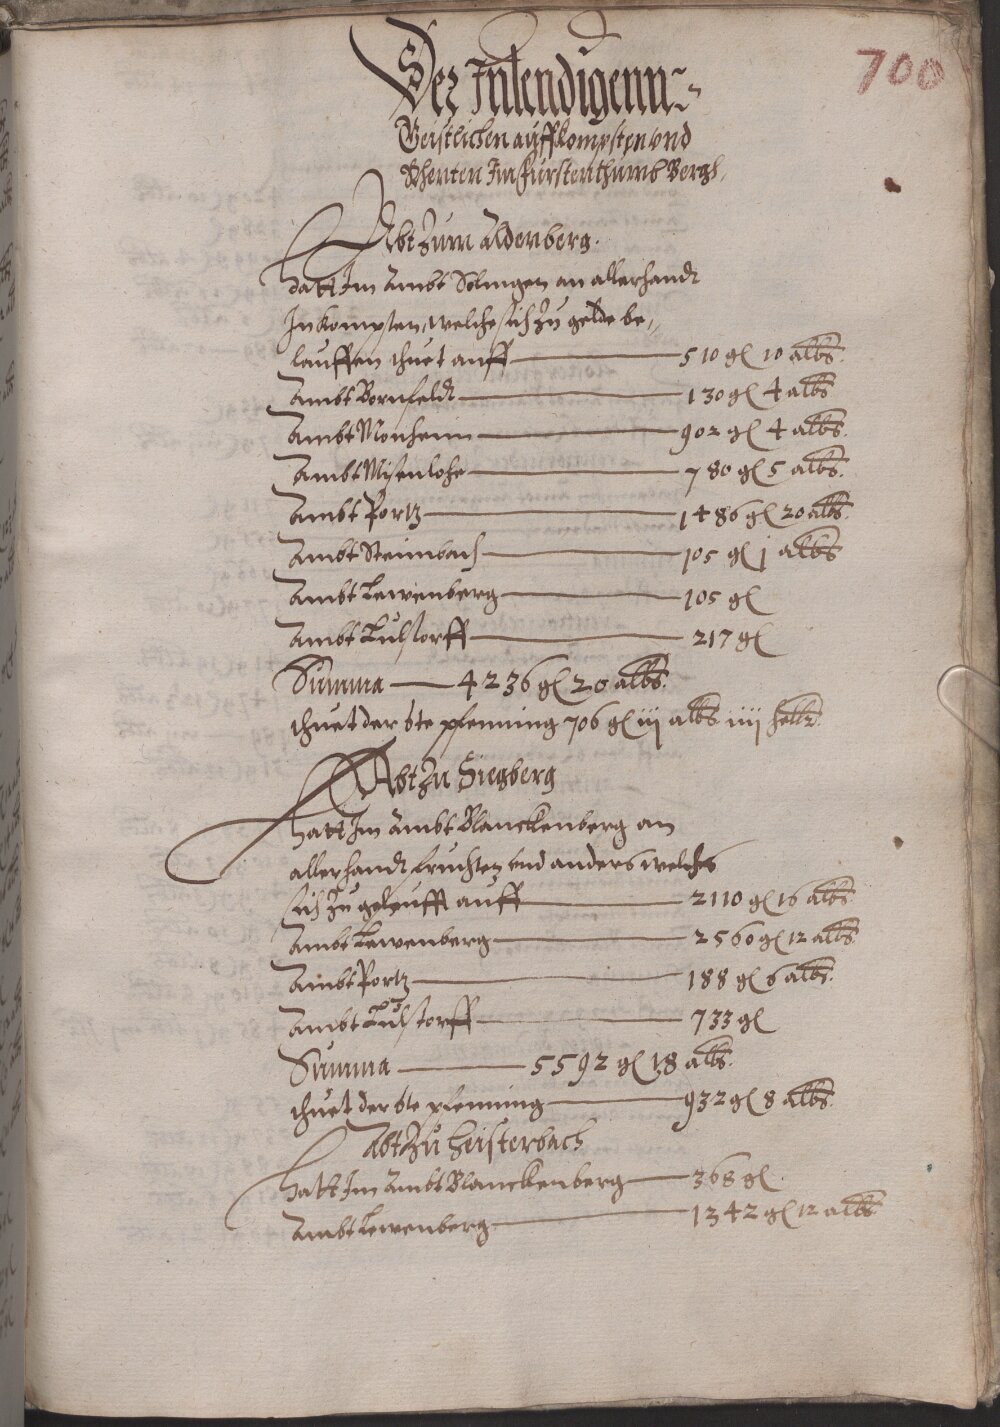 700
Der Inlendigenn
Geistlichen auffkompsten vnd
Rhenten Im fürstenthumb Bergh,
Abt zum Aldenberg.
Hatt Im Ambt Solingen an allerhandt
Inkompsten, welche sich zu gelde be„
lauffen thuet auff 510 gl 10 albs.
Ambt Bornfeldt 130 gl 4 albs
Ambt Monheim 902 gl 4 albs.
Ambt Misenlohe 780 gl 5 albs.
Ambt Portz 1486 gl 20 albs.
Ambt Steinbach 105 gl j albs
Ambt Lewenberg 105 gl
Ambt Lulstorff 217 gl
Summa 4236 gl 20 albs.
thuet der 6te pfenning 706 gl iij albs iiij hellr.
Abt zu Siegberg
Hatt Im Ambt Blanckenberg an
allerhandt fruchten vnd anders welchs
sich zu gelaufft auff 2110 gl 16 albs.
Ambt Lewenberg 2560 gl 12 albs
Ambt Portz 188 gl 6 albs.
Ambt Lulstorff 733 gl
Summa 5592 gl 18 albs.
thuet der 6te pfenning 932 gl 8 albs.
Abt zu Heisterbach
Hatt Im Ambt Blanckenberg 368 gl.
Ambt Lewenberg 1342 gl 12 albs